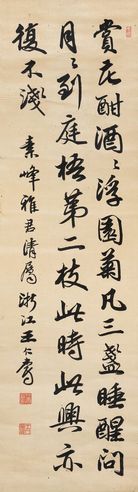 賞花酣酒酒浮園菊凡三盞睡醒問
月月到庭梧第二枝此時此興亦
復不淺
素峰雅君清屬浙江王仁爵